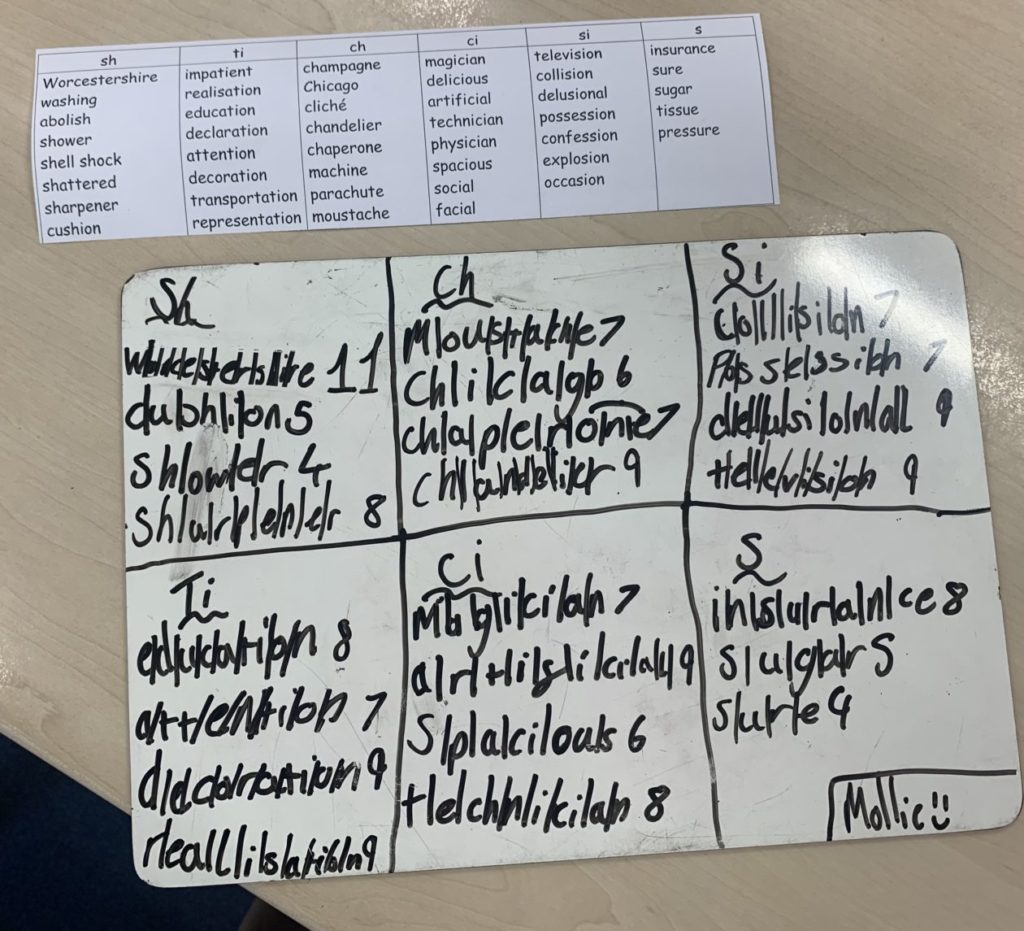 sh ti ch ci si s
Worcestershire impatient champagne magician television insurance
washing realisation Chicago delicious collision sure
abolish education cliché artificial delusional sugar
shower declaration chandelier technician possession tissue
shell shock attention chaperone physician confession pressure
shattered decoration machine spacious explosion
sharpener transportation parachute social occasion
cushion representation moustache facial
Sh
Worcestershire 11
cushion 5
Shower 4
Sharpener 8
Ch
Moustache 7
Chicago 6
chaperone 7
chandelier 9
Si
collision 7
Possession 7
delusional 9
television 9
Ti
education 8
attention 7
decoration 9
realisation 9
Ci
Magician 7
artificial 9
Spacious 6
technician 8
S
insurance 8
sugar 5
sure 4
Mollie